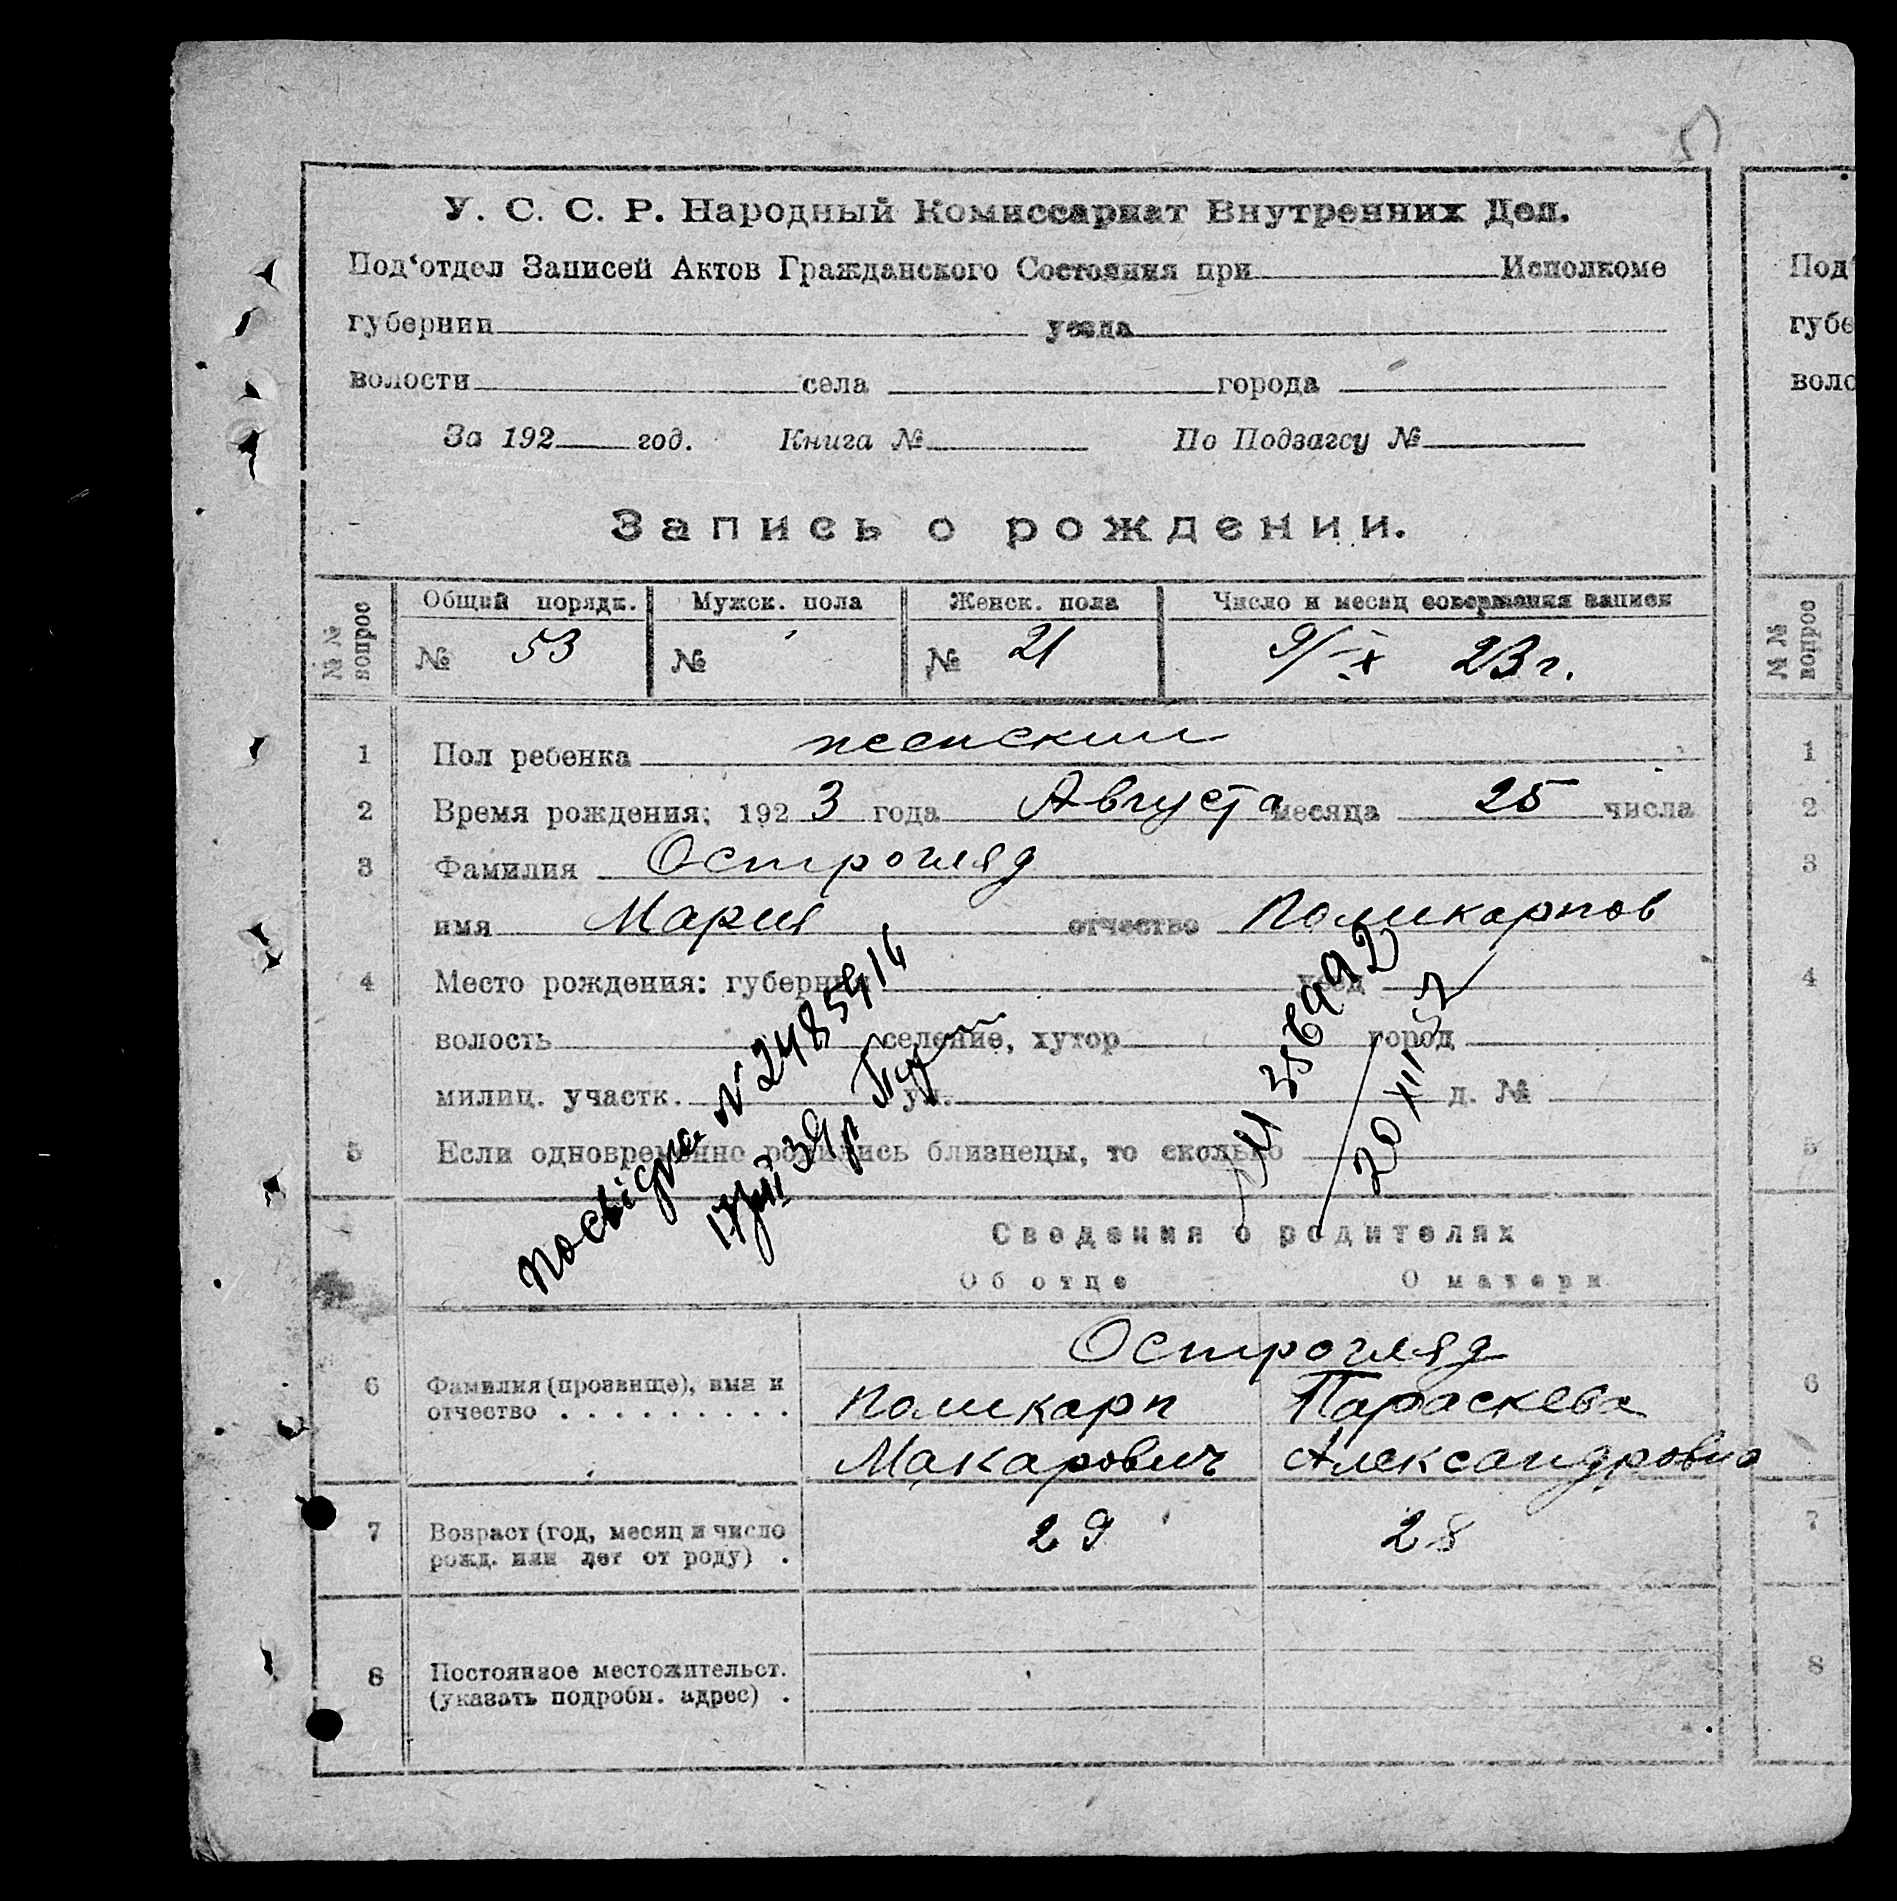 У. С. С. Р. Народный Комиссариат Внутренних Дел.
Под‘отдел Записей Актов Гражданского Состояния при Исполкоме
губернии уезда
волости села города
За 192 год. Книга № По Подзагсу №
Запись о рождении.
№ № вопрос
Общий порядк. Мужск. пола Женск. пола Число и месяц совершения записи
№ 53 № № 21 9/IX 23 г.
1 Пол ребенка женский
2 Время рождения; 192 3 года Августа месяца 25 числа
3 Фамилия Остргляд
имя Мария отчество Поликарпов
4 Место рождения: губерния уезд
волость селение, хутор город
милиц. участк. ул. д. №
5 Если одновременно родились близнецы, то сколько
Сведения о родителях
Об отце О матери
Остргляд
6 Фамилия (прозвище), имя и
отчество . . . . . . . . . .
Поликарп Параскева
Макарович Александровна
7 Возраст (год, месяц и число
рожд. или лет от роду) .
29 28
8 Постоянное местожительст.
(указать подробн. адрес) .
Под‘
губе
воло
№ №
вопрос
1
2
3
4
5
6
7
8